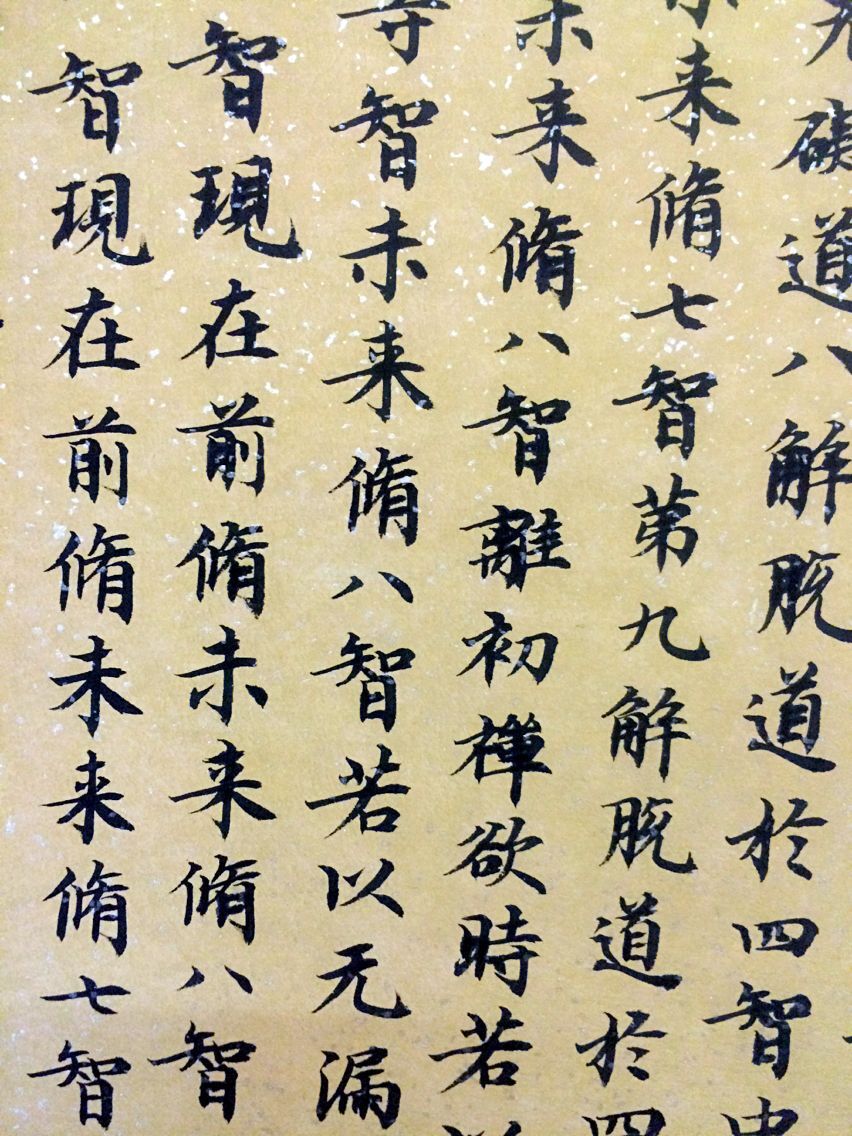 礙道八解脱道於四智中
未来脩七智第九解脱道於四
未来脩八智離初禪欲時若以
等智未来脩八智若以无漏
智現在前脩未来脩八智
智現在前脩未来脩七智